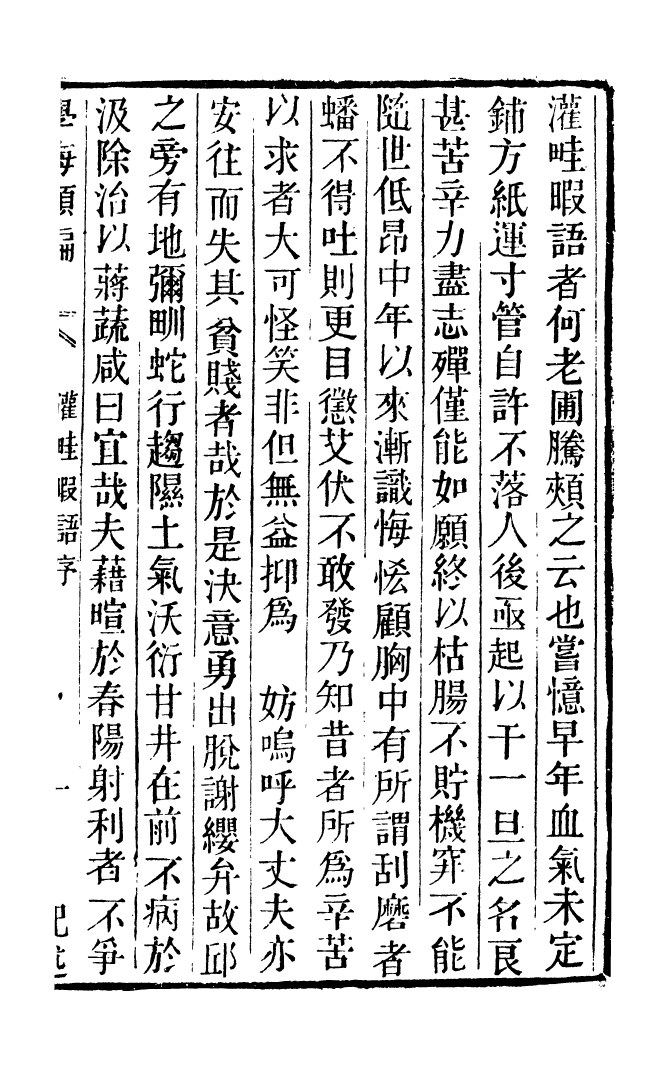 灌畦暇語者何老圃騰頰之云也嘗憶早年血氣未定
鋪方紙運寸管自許不落人後亟起以干一旦之名良
甚苦辛力盡志殫僅能如願終以枯腸不貯機穽不能
隨世低昂中年以來漸識悔恡顧胸中有所謂刮磨者
蟠不得吐則更目懲艾伏不敢發乃知昔者所為辛苦
以求者大可怪笑非但無益抑為　妨嗚呼大丈夫亦
安往而失其貧賤者哉於是決意勇出脫謝纓弁故邱
之旁有地彌甽蛇行趨隰土氣沃衍甘井在前不病於
汲除治以蒔蔬咸曰宜哉夫藉暄於春陽射利者不爭
學海類編　灌畦暇語序　一　記述